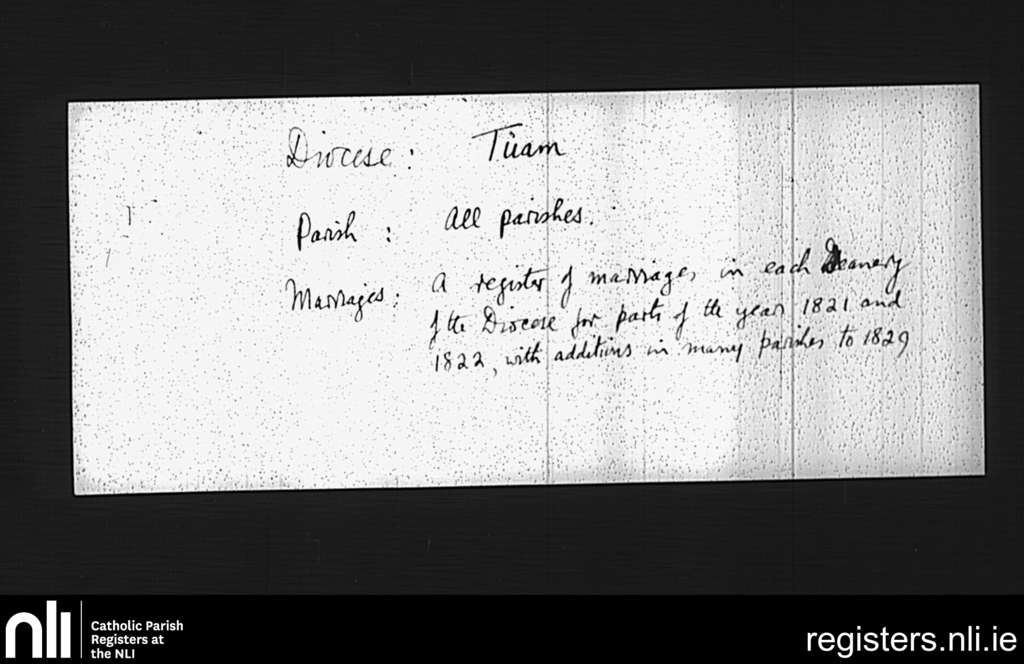 Diocese: Tuam
Parish: All parishes.
Marriages: A register of marriages in each Deanery
of the Diocese for parts of the years 1821 and
1822, with additions in many parishes to 1829
nli
Catholic Parish
Registers at
the NLI
registers.nli.ie